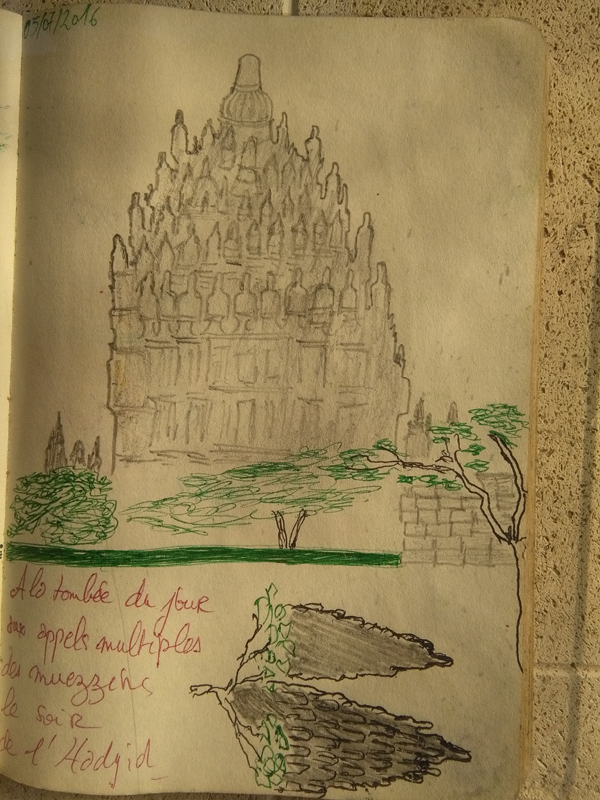 05/07/2016
A la tombée du jour
aux appels multiples
des muezzins
le soir
de l'Hadjid